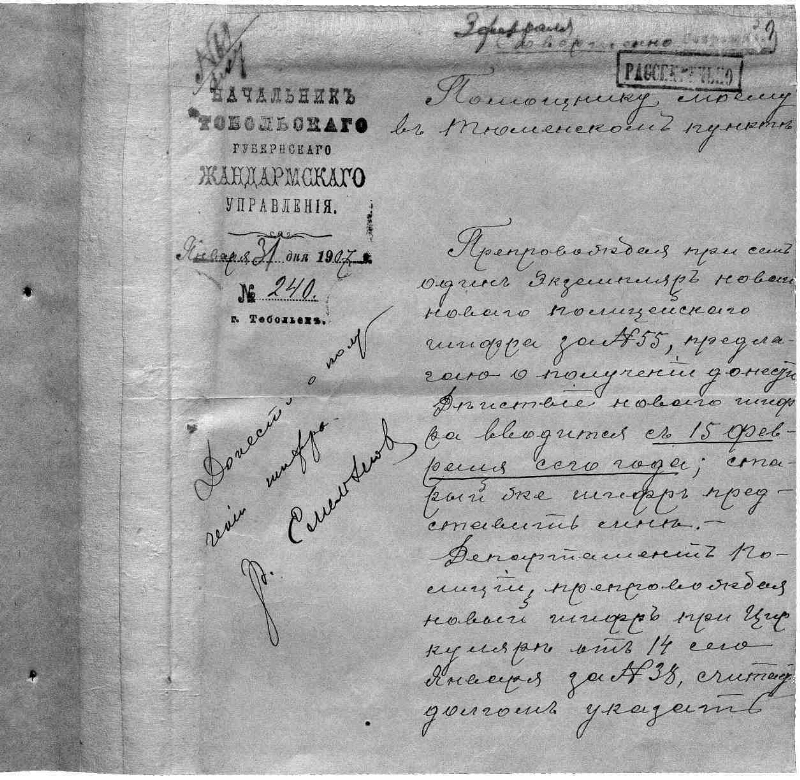 3 февраля
Совершенно
РАССЕКРЕЧЕНО
НАЧАЛЬНИКЪ
ТОБОЛЬСКАГО
ГУБЕРНСКАГО
ЖАНДАРМСКАГО
УПРАВЛЕНІЯ.
Января 31 дня 1907 г.
№ 240.
г. Тобольскъ.
Помощнику моему
въ Тюменскомъ пунктѣ
Препровождая при семъ
одинъ экземпляръ новаго
новаго полицейскаго
шифра за № 55, предла-
гаю о полученіи донести
Дѣйствіе новаго шиф-
ра вводится съ 15 фев-
раля сего года; ста-
рый же шифръ пред-
ставить мнѣ.-
Департаментъ По-
лиціи, препровождая
новый шифръ при Цир
кулярѣ отъ 14 сего
Января за № 38, считаетъ
долгомъ указать
Донести о полу
ченіи шифра.
р. Емельянов